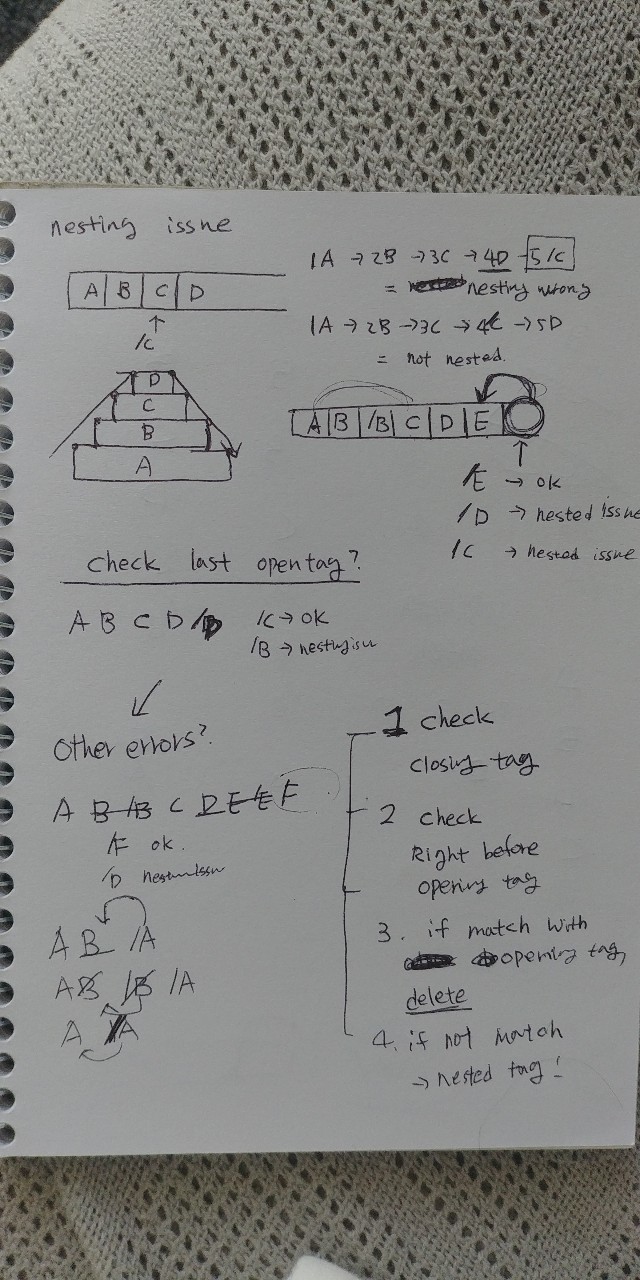 nesting issue
A B C D
/C
1A → 2B → 3C → 4D → 5/C
= nesting wrong
1A → 2B → 3C → 4C → 5D
= not nested.
D
C
B
A
A B /B C D E
/E → ok
/D → nested issue
/C → nested issue
check last open tag?
A B C D /D /C → ok
/B → nesting issu
Other errors?
A B /B C D E /E F
/F ok.
/D
A B /A
A B /B /A
A /A
1 check
closing tag
2 check
Right before
opening tag
3. if match with
opening tag,
delete
4. if not match
→ nested tag!